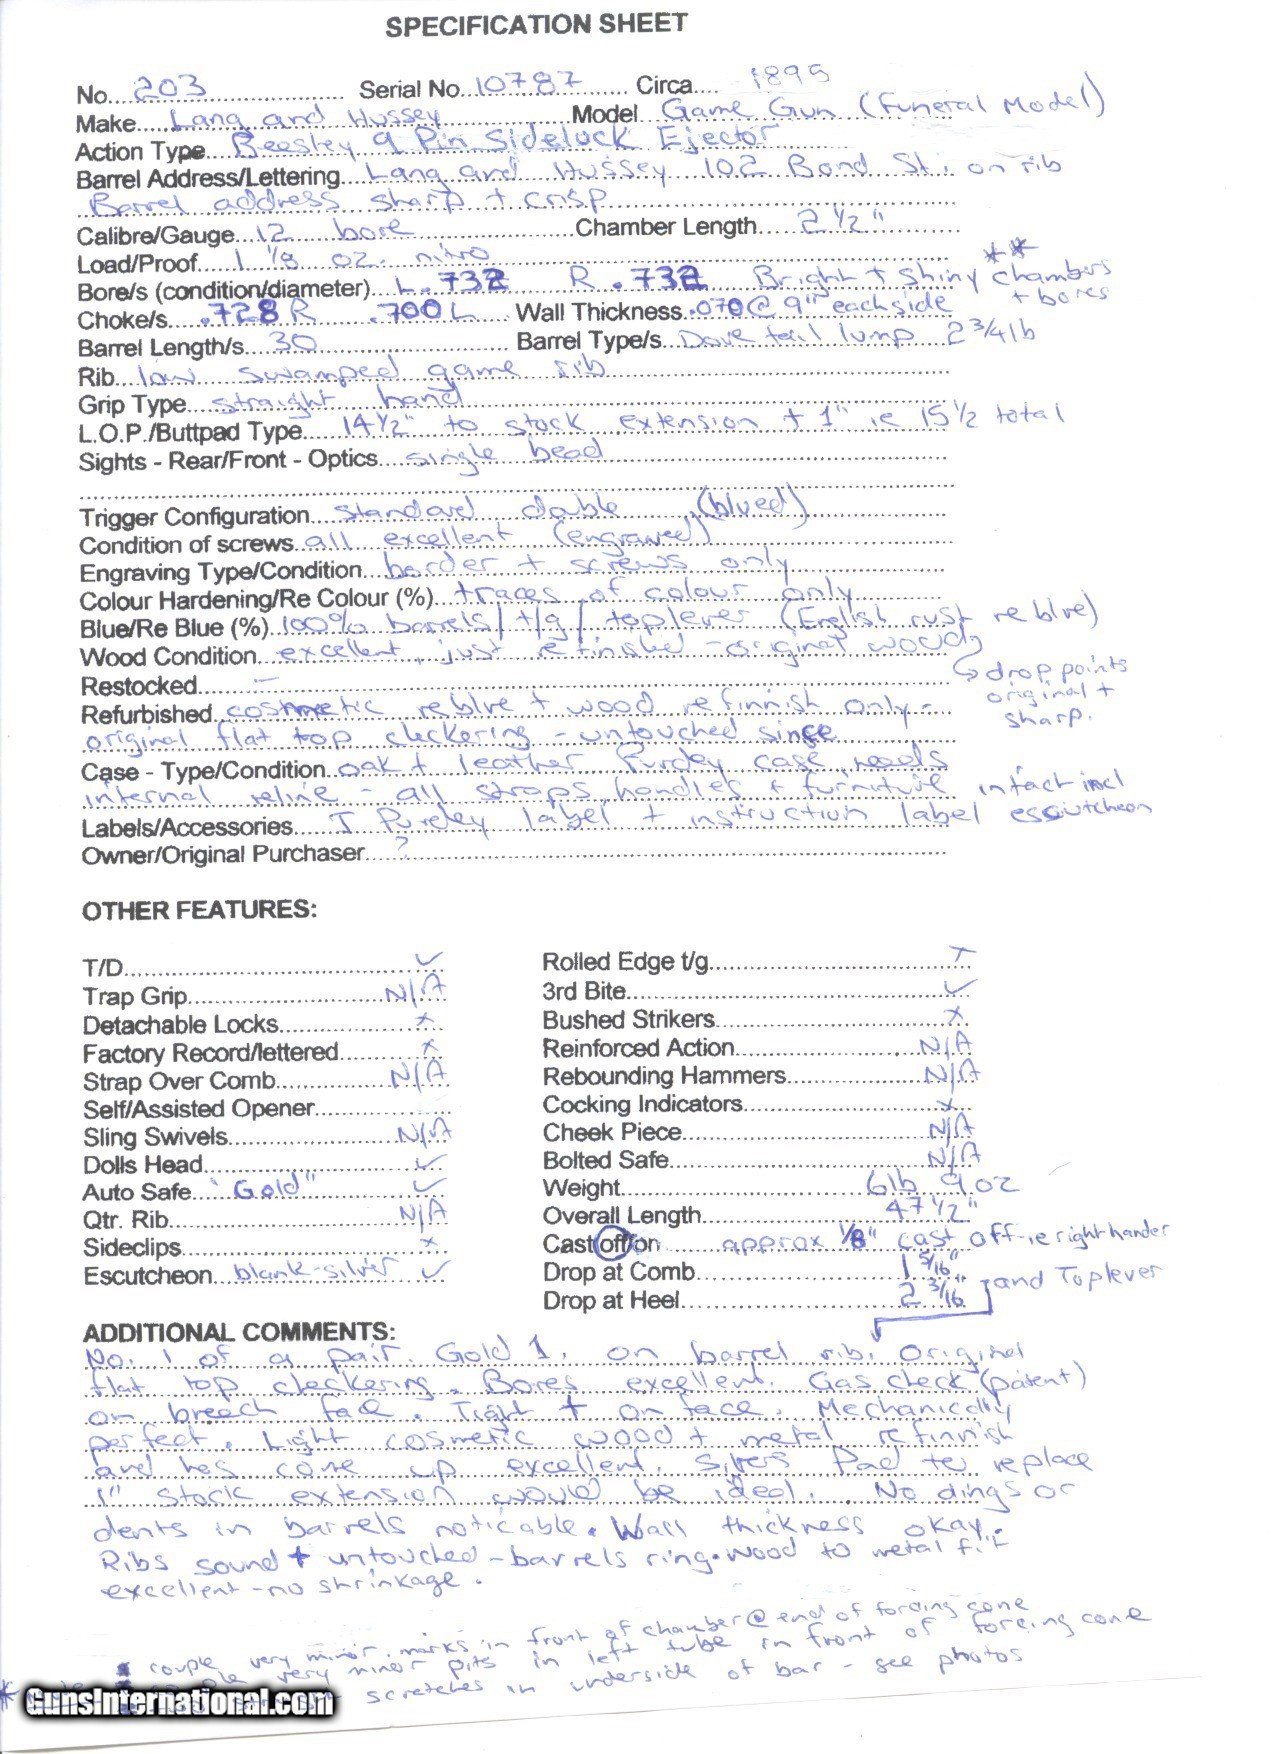 SPECIFICATION SHEET
No. 203 Serial No. 10787 Circa 1895
Make Lang and Hussey Model Game Gun (Funeral Model)
Action Type Beesley 9 Pin Sidelock Ejector
Barrel Address/Lettering Lang and Hussey 102 Bond St. on rib
Barrel address sharp + crisp
Calibre/Gauge 12 bore Chamber Length 2 1/2"
Load/Proof 1 1/8 oz. nitro
Bore/s (condition/diameter) L .732 R .732 Bright + shiny chambers + bores **
Choke/s .728 R .700 L Wall Thickness .070 @ 9" each side
Barrel Length/s 30 Barrel Type/s Dove tail lump 2 3/4 lb
Rib low swamped game rib
Grip Type straight hand
L.O.P./Buttpad Type 14 1/2" to stock extension + 1" ie 15 1/2 total
Sights - Rear/Front - Optics single bead
Trigger Configuration standard double (blued)
Condition of screws all excellent (engraved)
Engraving Type/Condition border + screws only
Colour Hardening/Re Colour (%) traces of colour only
Blue/Re Blue (%) 100% barrels / t/g / toplever (English rust re blue)
Wood Condition excellent, just refinished - original wood
drop points original + sharp.
Restocked -
Refurbished cosmetic reblue + wood refinnish only -
original flat top checkering - untouched since
Case - Type/Condition oak + leather Purdey case needs
internal reline - all straps, handles + furniture intact incl escutcheon
Labels/Accessories J Purdey label + instruction label
Owner/Original Purchaser ?
OTHER FEATURES:
T/D ✓ Rolled Edge t/g x
Trap Grip N/A 3rd Bite ✓
Detachable Locks x Bushed Strikers x
Factory Record/lettered x Reinforced Action N/A
Strap Over Comb N/A Rebounding Hammers N/A
Self/Assisted Opener Cocking Indicators x
Sling Swivels N/A Cheek Piece N/A
Dolls Head ✓ Bolted Safe N/A
Auto Safe "Gold" ✓ Weight 6lb 9oz
Qtr. Rib N/A Overall Length 47 1/2"
Sideclips x Cast off/on approx 1/8" cast off - ie right hander
Escutcheon blank - silver ✓ Drop at Comb 1 5/16"
Drop at Heel 2 3/16"
and Toplever
ADDITIONAL COMMENTS:
No. 1 of a pair. Gold 1. on barrel rib. Original
flat top checkering. Bores excellent. Gas check (patent)
on breech face. Tight + on face. Mechanically
perfect. Light cosmetic wood + metal refinnish
and has come up excellent. Silvers Pad to replace
1" stock extension would be ideal. No dings or
dents in barrels noticable. Wall thickness okay.
Ribs sound + untouched - barrels ring. wood to metal fit
excellent - no shrinkage.
couple very minor marks in front of chamber @ end of forcing cone
very minor pits in left tube in front of forcing cone
scretches in underside of bar - see photos
GunsInternational.com